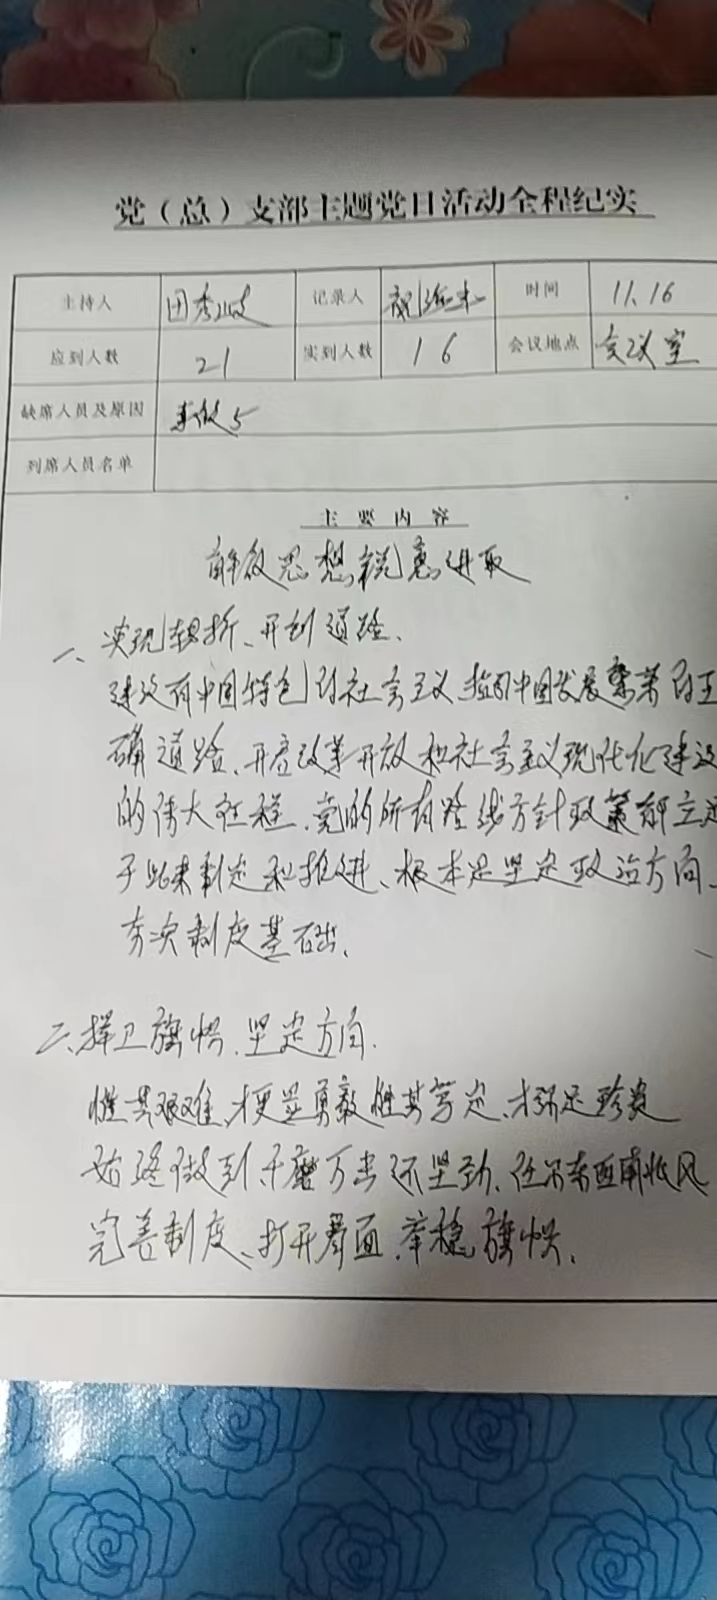 党（总）支部主题党日活动全程纪实
主持人 田秀岐 记录人 时间 11.16
应到人数 21 实到人数 16 会议地点 会议室
缺席人员及原因 事假5
列席人员名单
主要内容
解放思想锐意进取
一、实现转折、开创道路、
建设有中国特色的社会主义、指引中国发展繁荣的正
确道路、开启改革开放和社会主义现代化建设
的伟大征程、党的所有路线方针政策都立足
于此来制定和推进、根本是坚定政治方向、
夯实制度基础、
二、捍卫旗帜、坚定方向.
惟其艰难、才更显勇毅惟其笃定、才弥足珍贵
始终做到、千磨万击还坚劲、任尔东西南北风
完善制度、打开局面、举稳旗帜、